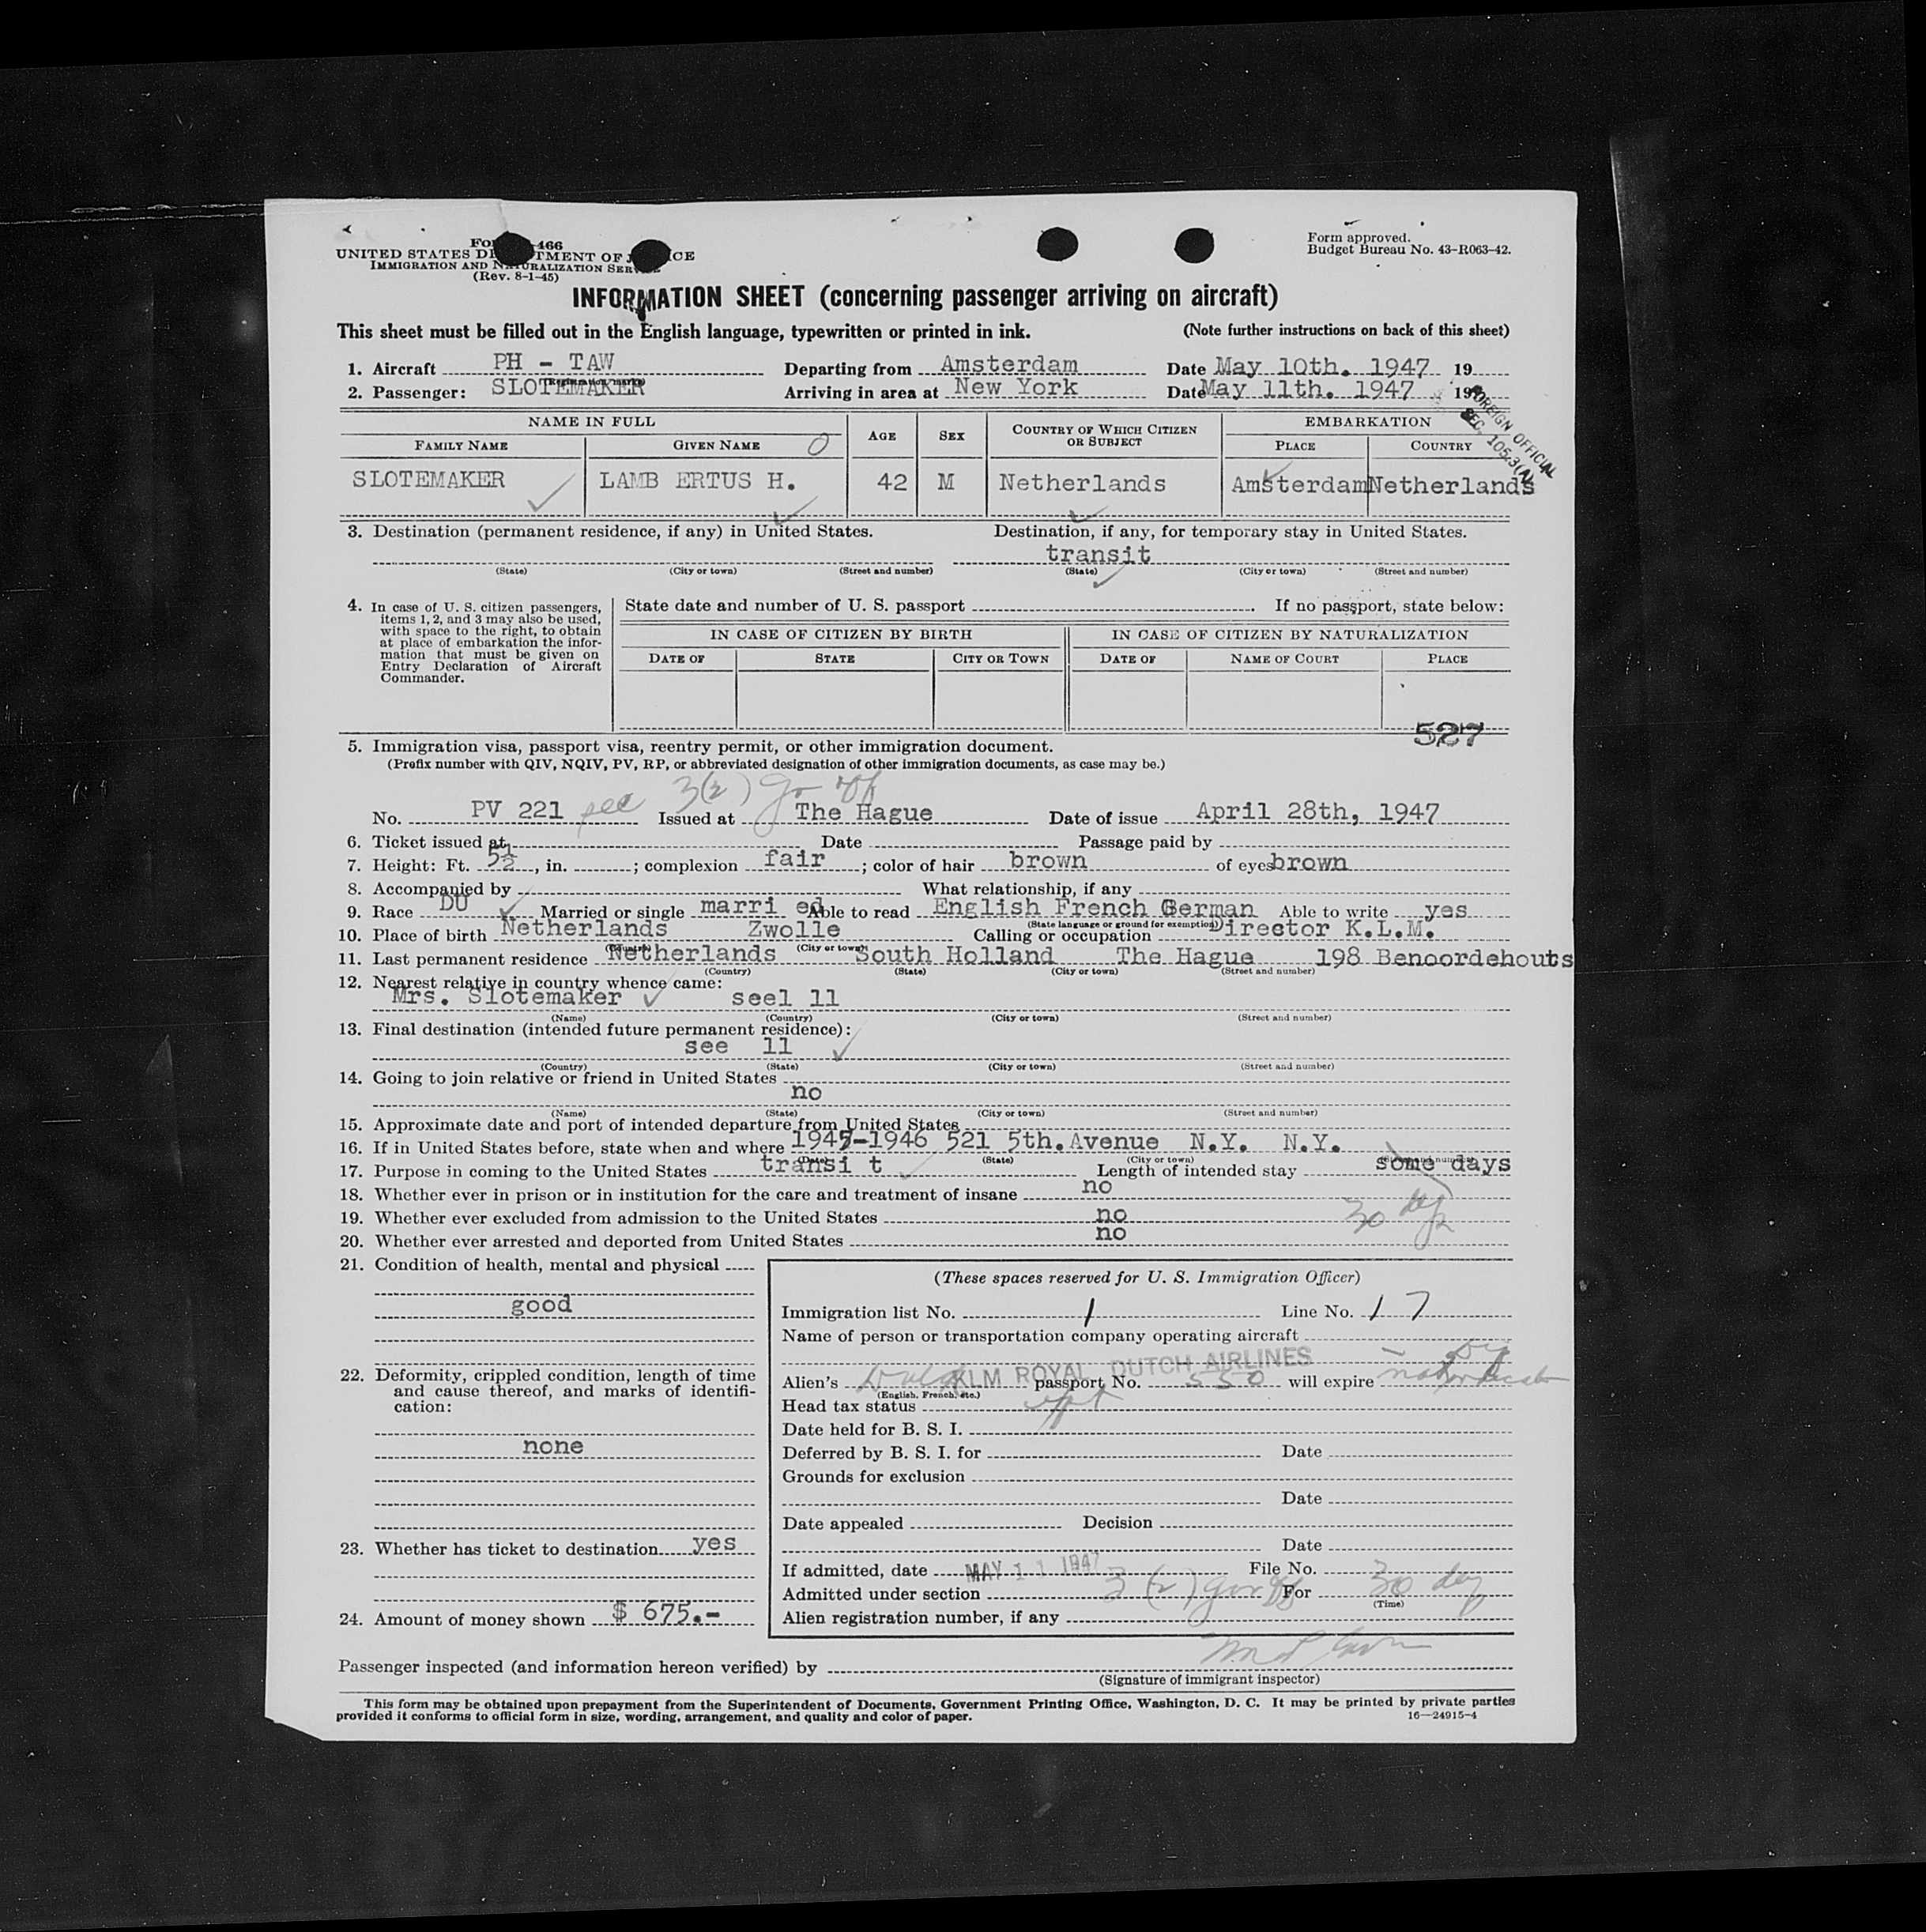 Form 466
UNITED STATES DEPARTMENT OF JUSTICE
IMMIGRATION AND NATURALIZATION SERVICE
(Rev. 8-1-45)
Form approved.
Budget Bureau No. 43-R063-42.
INFORMATION SHEET (concerning passenger arriving on aircraft)
This sheet must be filled out in the English language, typewritten or printed in ink. (Note further instructions on back of this sheet)
1. Aircraft PH - TAW Departing from Amsterdam Date May 10th. 1947 19
(Registration marks)
2. Passenger: SLOTEMAKER Arriving in area at New York Date May 11th. 1947 19
FOREIGN OFFICIAL
SEC. 105.3(A)
NAME IN FULL AGE SEX COUNTRY OF WHICH CITIZEN OR SUBJECT EMBARKATION
FAMILY NAME GIVEN NAME PLACE COUNTRY
SLOTEMAKER LAMB ERTUS H. 42 M Netherlands Amsterdam Netherlands
3. Destination (permanent residence, if any) in United States. Destination, if any, for temporary stay in United States.
transit
(State) (City or town) (Street and number) (State) (City or town) (Street and number)
4. In case of U. S. citizen passengers, items 1, 2, and 3 may also be used, with space to the right, to obtain at place of embarkation the information that must be given on Entry Declaration of Aircraft Commander.
State date and number of U. S. passport . If no passport, state below:
IN CASE OF CITIZEN BY BIRTH IN CASE OF CITIZEN BY NATURALIZATION
DATE OF STATE CITY OR TOWN DATE OF NAME OF COURT PLACE
527
5. Immigration visa, passport visa, reentry permit, or other immigration document.
(Prefix number with QIV, NQIV, PV, RP, or abbreviated designation of other immigration documents, as case may be.)
3(2)
No. PV 221 Issued at The Hague Date of issue April 28th, 1947
6. Ticket issued at Date Passage paid by
7. Height: Ft. 5½, in. ; complexion fair ; color of hair brown of eyes brown
8. Accompanied by What relationship, if any
9. Race DU Married or single marri ed Able to read English French German Able to write yes
(State language or ground for exemption)
10. Place of birth Netherlands Zwolle Calling or occupation Director K.L.M.
(Country) (City or town)
11. Last permanent residence Netherlands South Holland The Hague 198 Benoordehouts
(Country) (State) (City or town) (Street and number)
12. Nearest relative in country whence came:
Mrs. Slotemaker seel 11
(Name) (Country) (City or town) (Street and number)
13. Final destination (intended future permanent residence):
see 11
(Country) (State) (City or town) (Street and number)
14. Going to join relative or friend in United States
no
(Name) (State) (City or town) (Street and number)
15. Approximate date and port of intended departure from United States
16. If in United States before, state when and where 1945-1946 521 5th. Avenue N.Y. N.Y.
(Date) (State) (City or town) (Street and number)
17. Purpose in coming to the United States transi t Length of intended stay some days
18. Whether ever in prison or in institution for the care and treatment of insane no
19. Whether ever excluded from admission to the United States no
30 days
20. Whether ever arrested and deported from United States no
21. Condition of health, mental and physical
good
22. Deformity, crippled condition, length of time and cause thereof, and marks of identification:
none
23. Whether has ticket to destination yes
24. Amount of money shown $ 675.-
(These spaces reserved for U. S. Immigration Officer)
Immigration list No. 1 Line No. 17
Name of person or transportation company operating aircraft
KLM ROYAL DUTCH AIRLINES
Alien's passport No. 550 will expire
(English, French, etc.)
Head tax status
Date held for B. S. I.
Deferred by B. S. I. for Date
Grounds for exclusion
Date
Date appealed Decision
Date
If admitted, date MAY 11 1947 File No.
Admitted under section 3 (2) For 30 day
(Time)
Alien registration number, if any
Passenger inspected (and information hereon verified) by
(Signature of immigrant inspector)
This form may be obtained upon prepayment from the Superintendent of Documents, Government Printing Office, Washington, D. C. It may be printed by private parties
provided it conforms to official form in size, wording, arrangement, and quality and color of paper. 16—24915-4